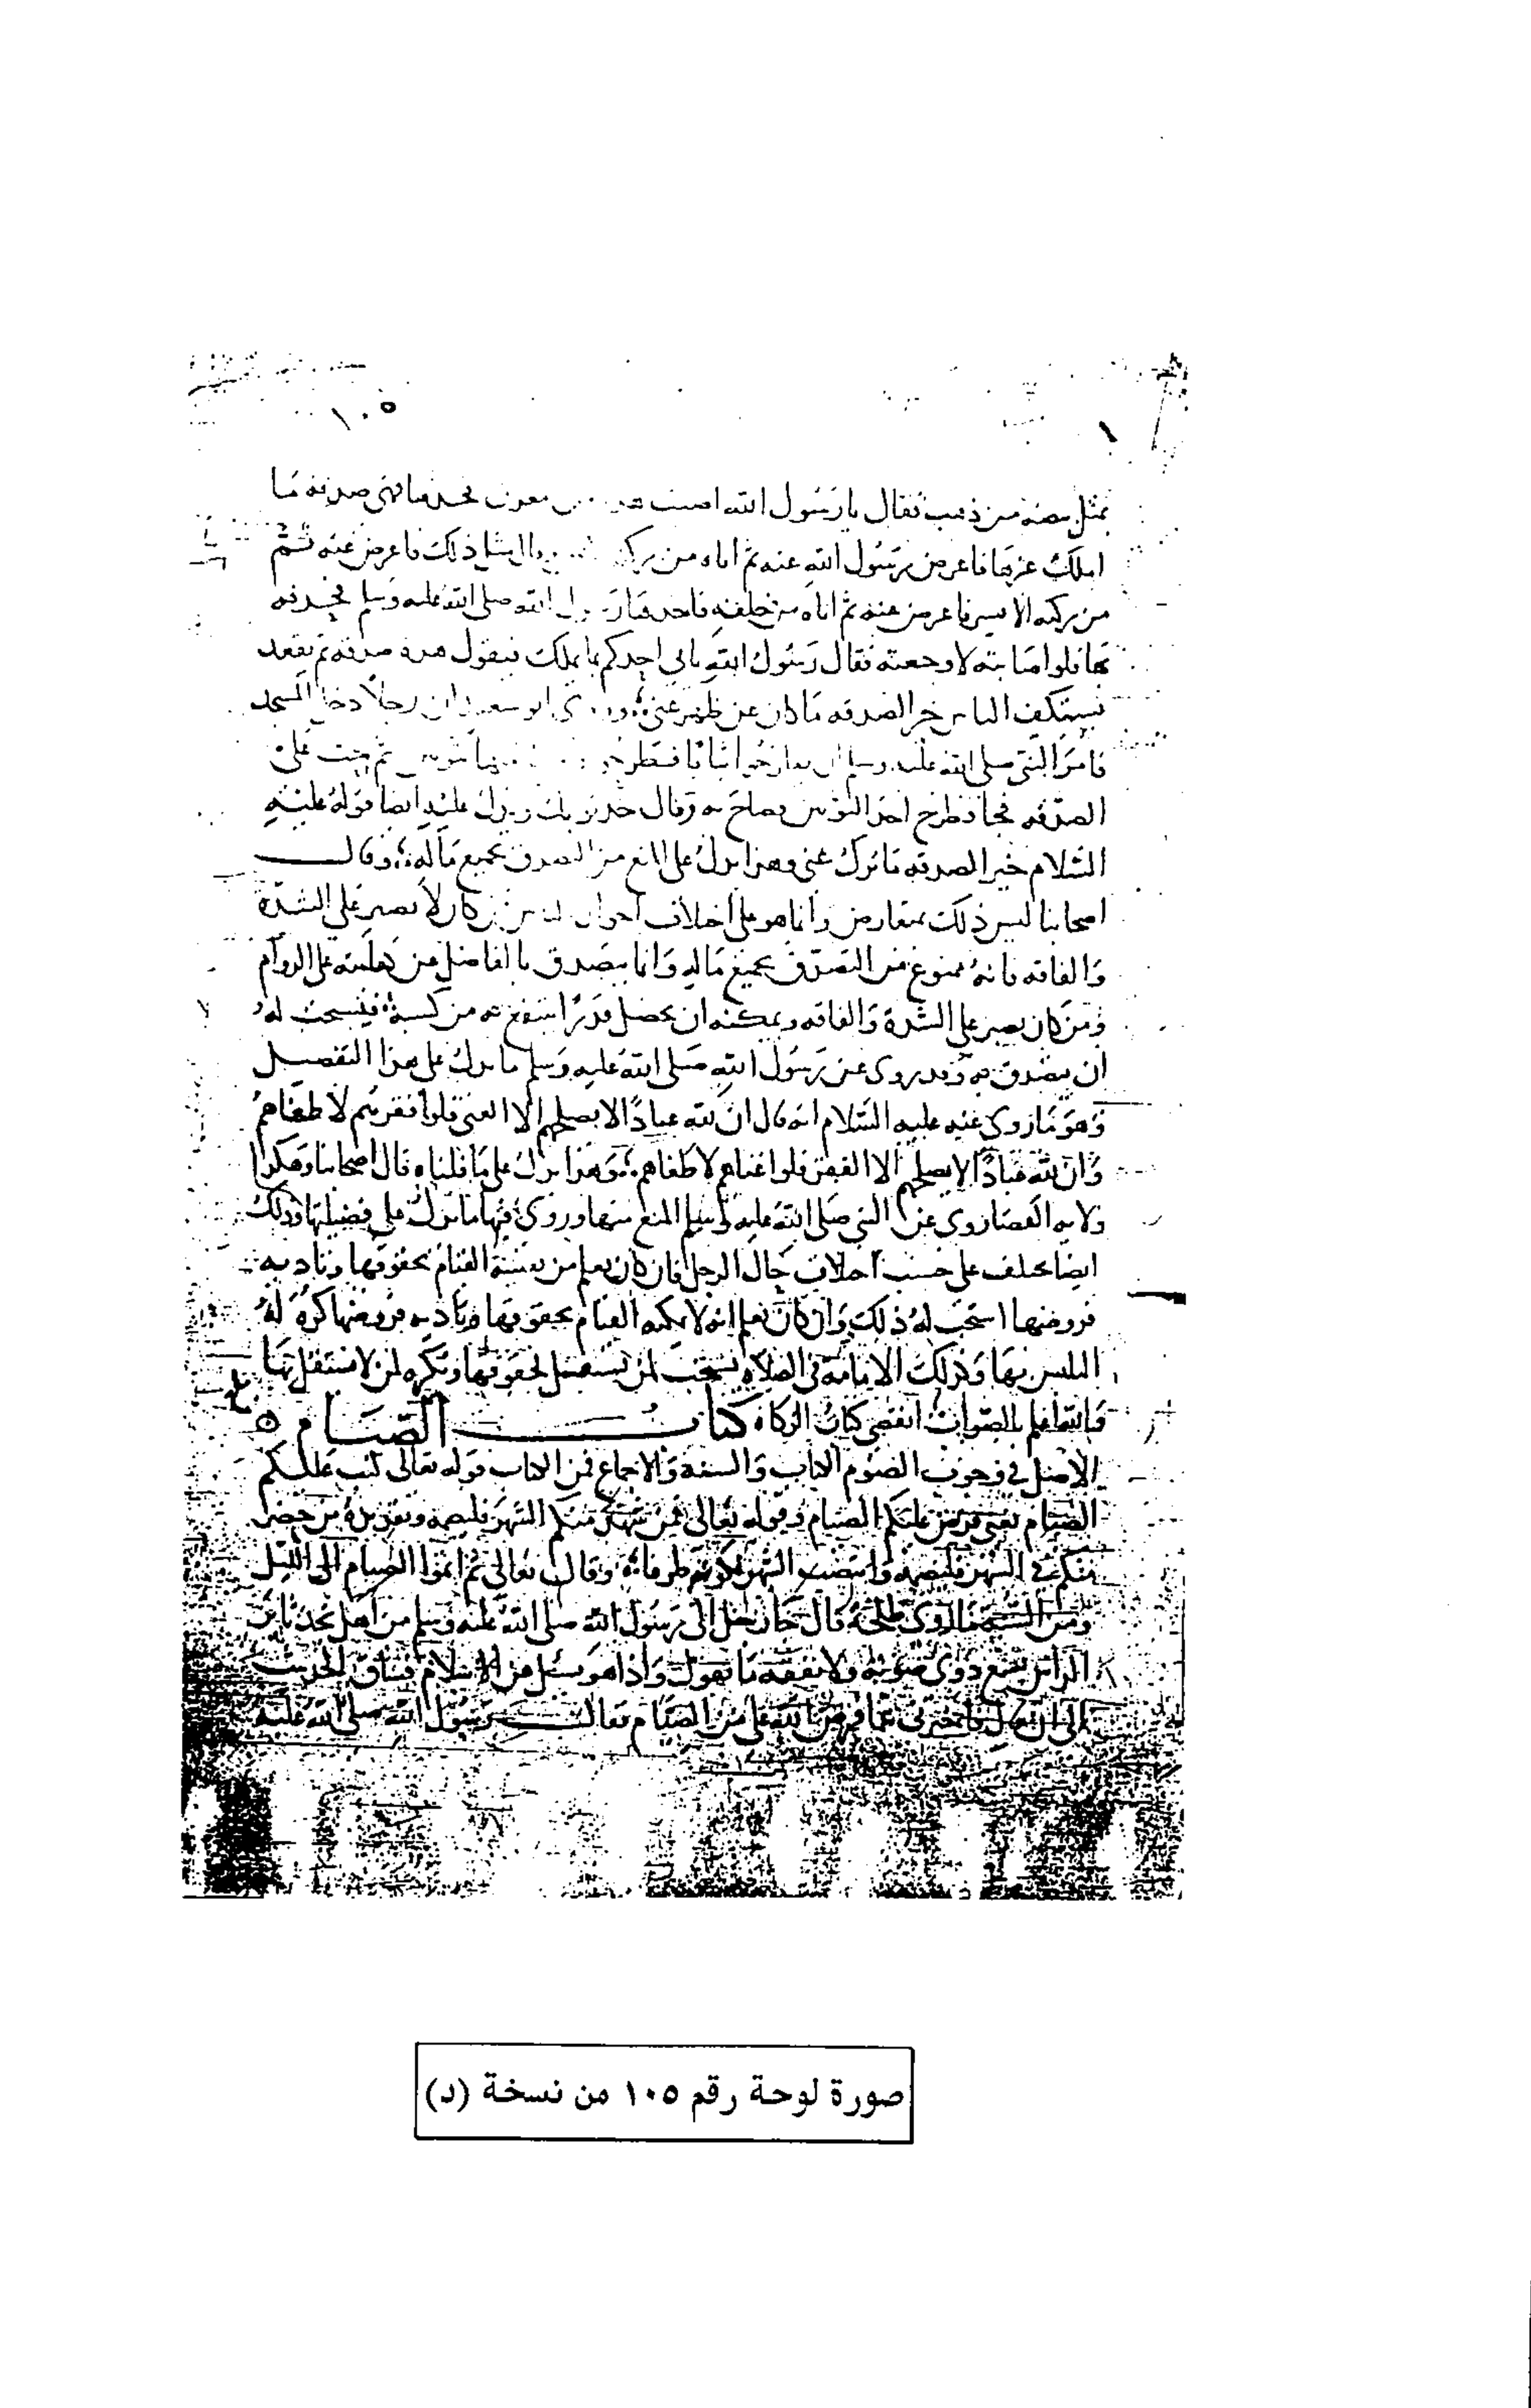 ١٠٥
بمثل بيضة من ذهب فقال يا رسول الله اصبت هذه من معدن فخذها فهي صدقة ما
املك غيرها فاعرض رسول الله عنه ثم اتاه من ركنه فقال مثل ذلك فاعرض عنه ثم
من ركنه الايسر فاعرض عنه ثم اتاه من خلفه فاخذها رسول الله صلى الله عليه وسلم فحذفه
بها فلو اصابته لاوجعته فقال رسول الله ياتي احدكم بما يملك فيقول هذه صدقة ثم يقعد
يستكف الناس خير الصدقه ما كان عن ظهر غنى وروى ابو سعيد ان رجلا دخل المسجد
فامر النبي صلى الله عليه وسلم ان يطرحوا ثيابا فطرحوا ثوبين ثم حث على
الصدقه فجا فطرح احد الثوبين فصاح به وقال خذ ثوبك ويدل عليه ايضا قوله عليه
السلام خير الصدقه ما ترك غنى وهذا يدل على المنع من التصدق بجميع ماله وقال
اصحابنا ليس ذلك بمتعارض وانما هو على اختلاف احوال من كان لا يصبر على الشدة
والفاقه فانه ممنوع من التصدق بجميع ماله وانما يتصدق بالفاضل من كفايته على الدوام
ومن كان يصبر على الشدة والفاقه ويمكنه ان يحصل قدرا ينتفع به من كسبه فيستحب له
ان يتصدق به وقد روى عن رسول الله صلى الله عليه وسلم ما يدل على هذا التفصيل
وهو ما روي عنه عليه السلام انه قال ان لله عبادا لا يصلحهم الا الغنى فلو افقرتهم لاطغاهم
وان لله عبادا لا يصلحهم الا الفقر فلو اغناهم لاطغاهم وهذا يدل على ما قلناه قال اصحابنا وهكذا
ولايه القضا روي عن النبي صلى الله عليه وسلم المنع منها وروي فيها ما يدل على فضيلتها وذلك
ايضا يختلف على حسب اختلاف حال الرجل فان كان يعلم من نفسه القيام بحقوقها وتادية
فروضها استحب له ذلك وان كان يعلم انه لا يمكنه القيام بحقوقها وتاديه فروضها كره له
التلبس بها وكذلك الامامة في الصلاة يستحب لمن يستقل بحقوقها وتكره لمن لا يستقل بها
والله اعلم بالصواب انقضى كتاب الزكاه كتاب الصيام
الاصل في وجوب الصوم الكتاب والسنه والاجماع فمن الكتاب قوله تعالى كتب عليكم
الصيام يعني فرض عليكم الصيام وقوله تعالى فمن شهد منكم الشهر فليصمه وتقديره من حضر
منكم في الشهر فليصمه وانتصب الشهر لكونه ظرفا وقال تعالى ثم اتموا الصيام الى الليل
ومن السنه ما روى طلحة قال جا رجل الى رسول الله صلى الله عليه وسلم من اهل نجد ثاير
الراس يسمع دوي صوته ولا يفقه ما يقول واذا هو يسئل عن الاسلام فساق الحديث
الى ان قال فاخبرني بما فرض الله علي من الصيام فقال رسول الله صلى الله عليه
صورة لوحة رقم ١٠٥ من نسخة (د)